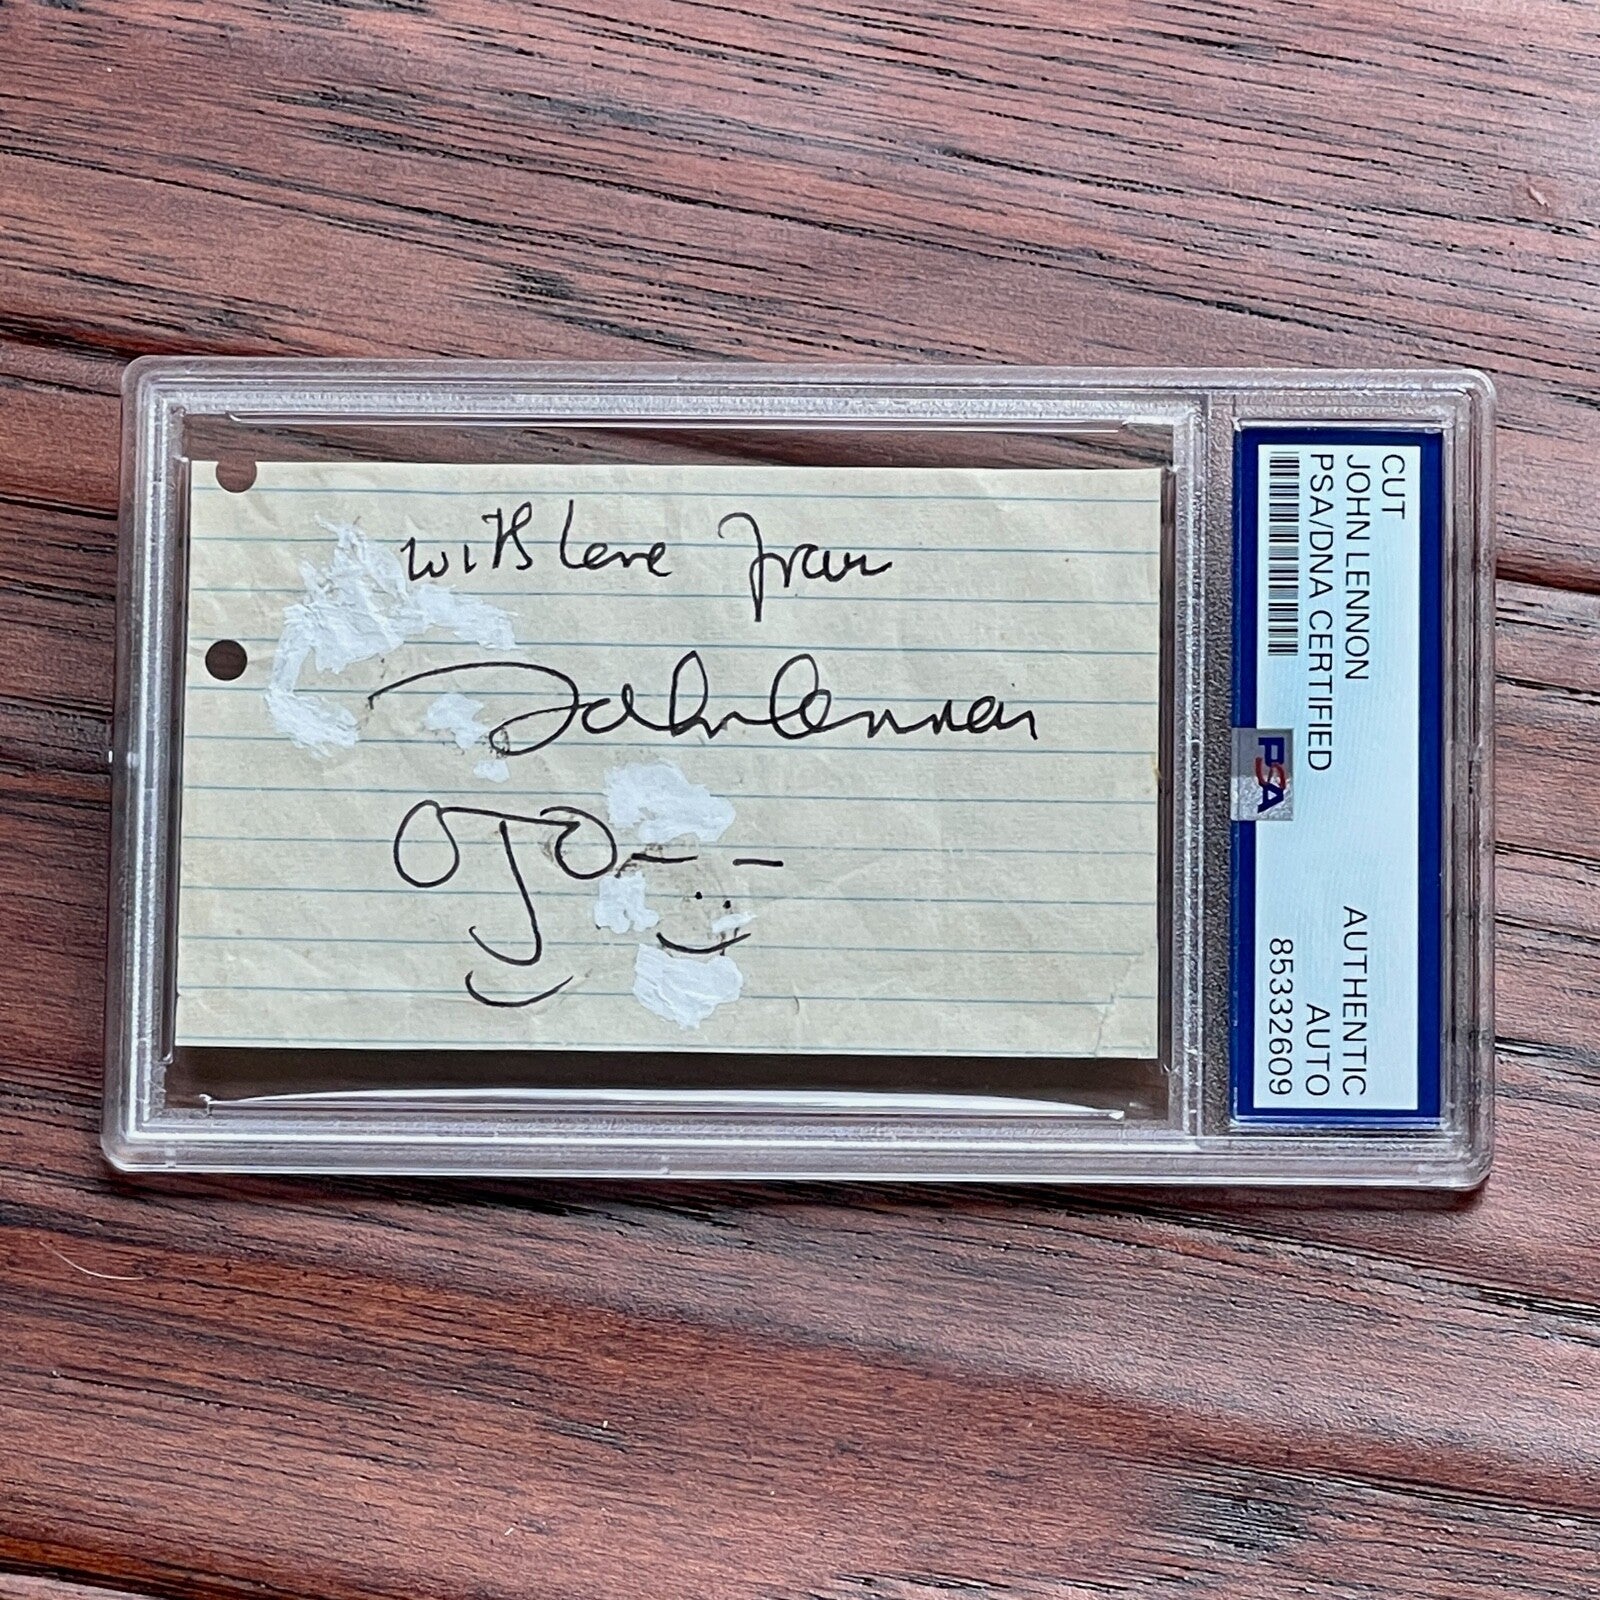 with love from
John Lennon
CUT
JOHN LENNON
PSA/DNA CERTIFIED
AUTHENTIC
AUTO
85332609
PSA